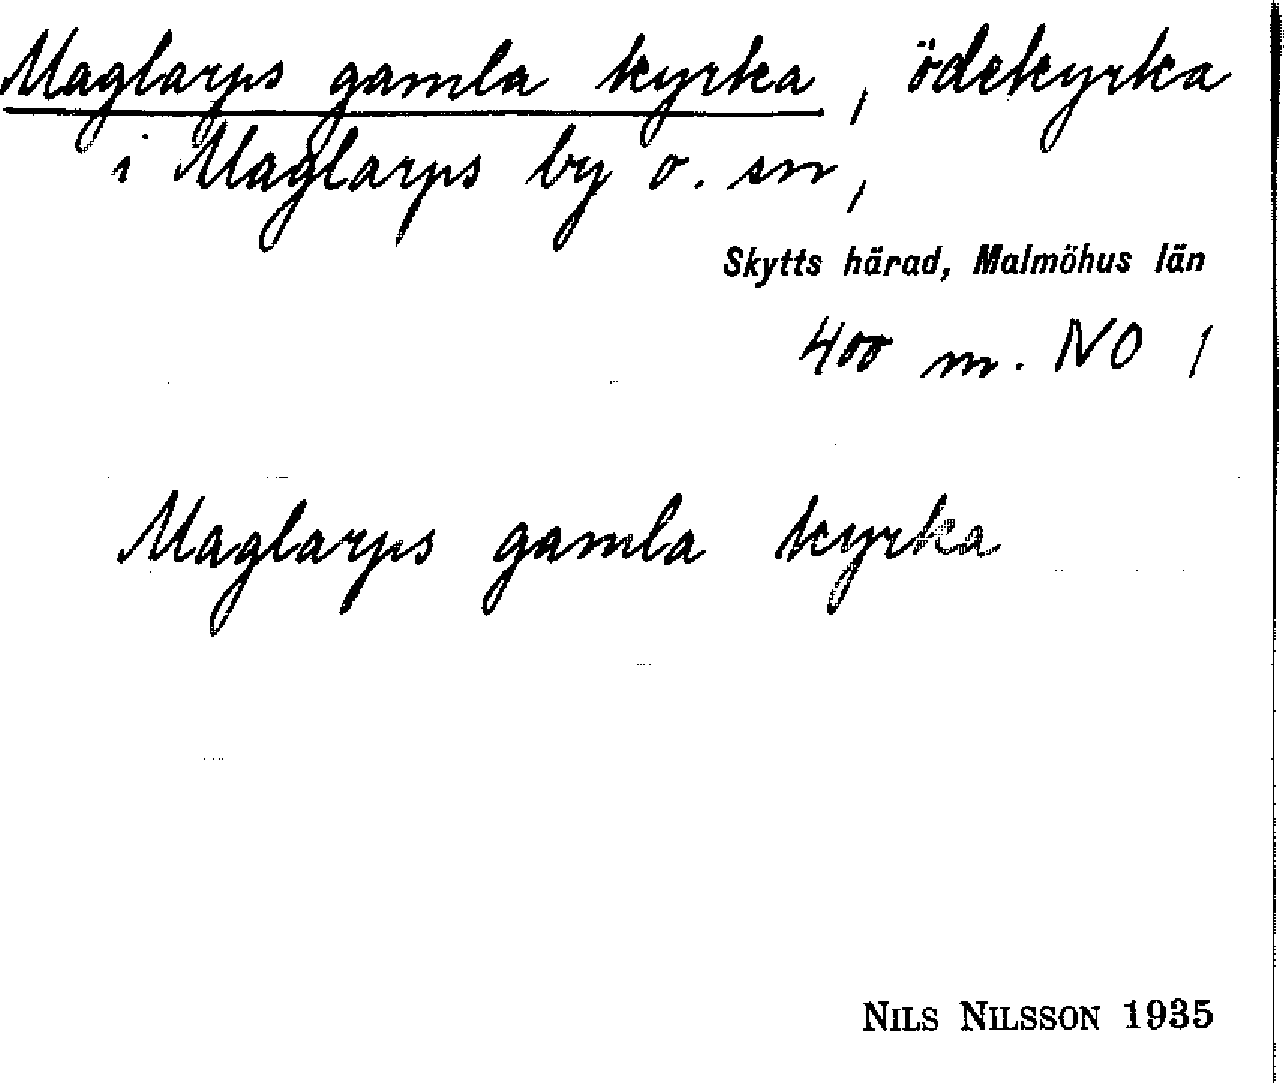 Maglarps gamla kyrka, ödekyrka
i Maglarps by o. sn,
Skytts härad, Malmöhus län
400 m. NO /
Maglarps gamla kyrka
NILS NILSSON 1935